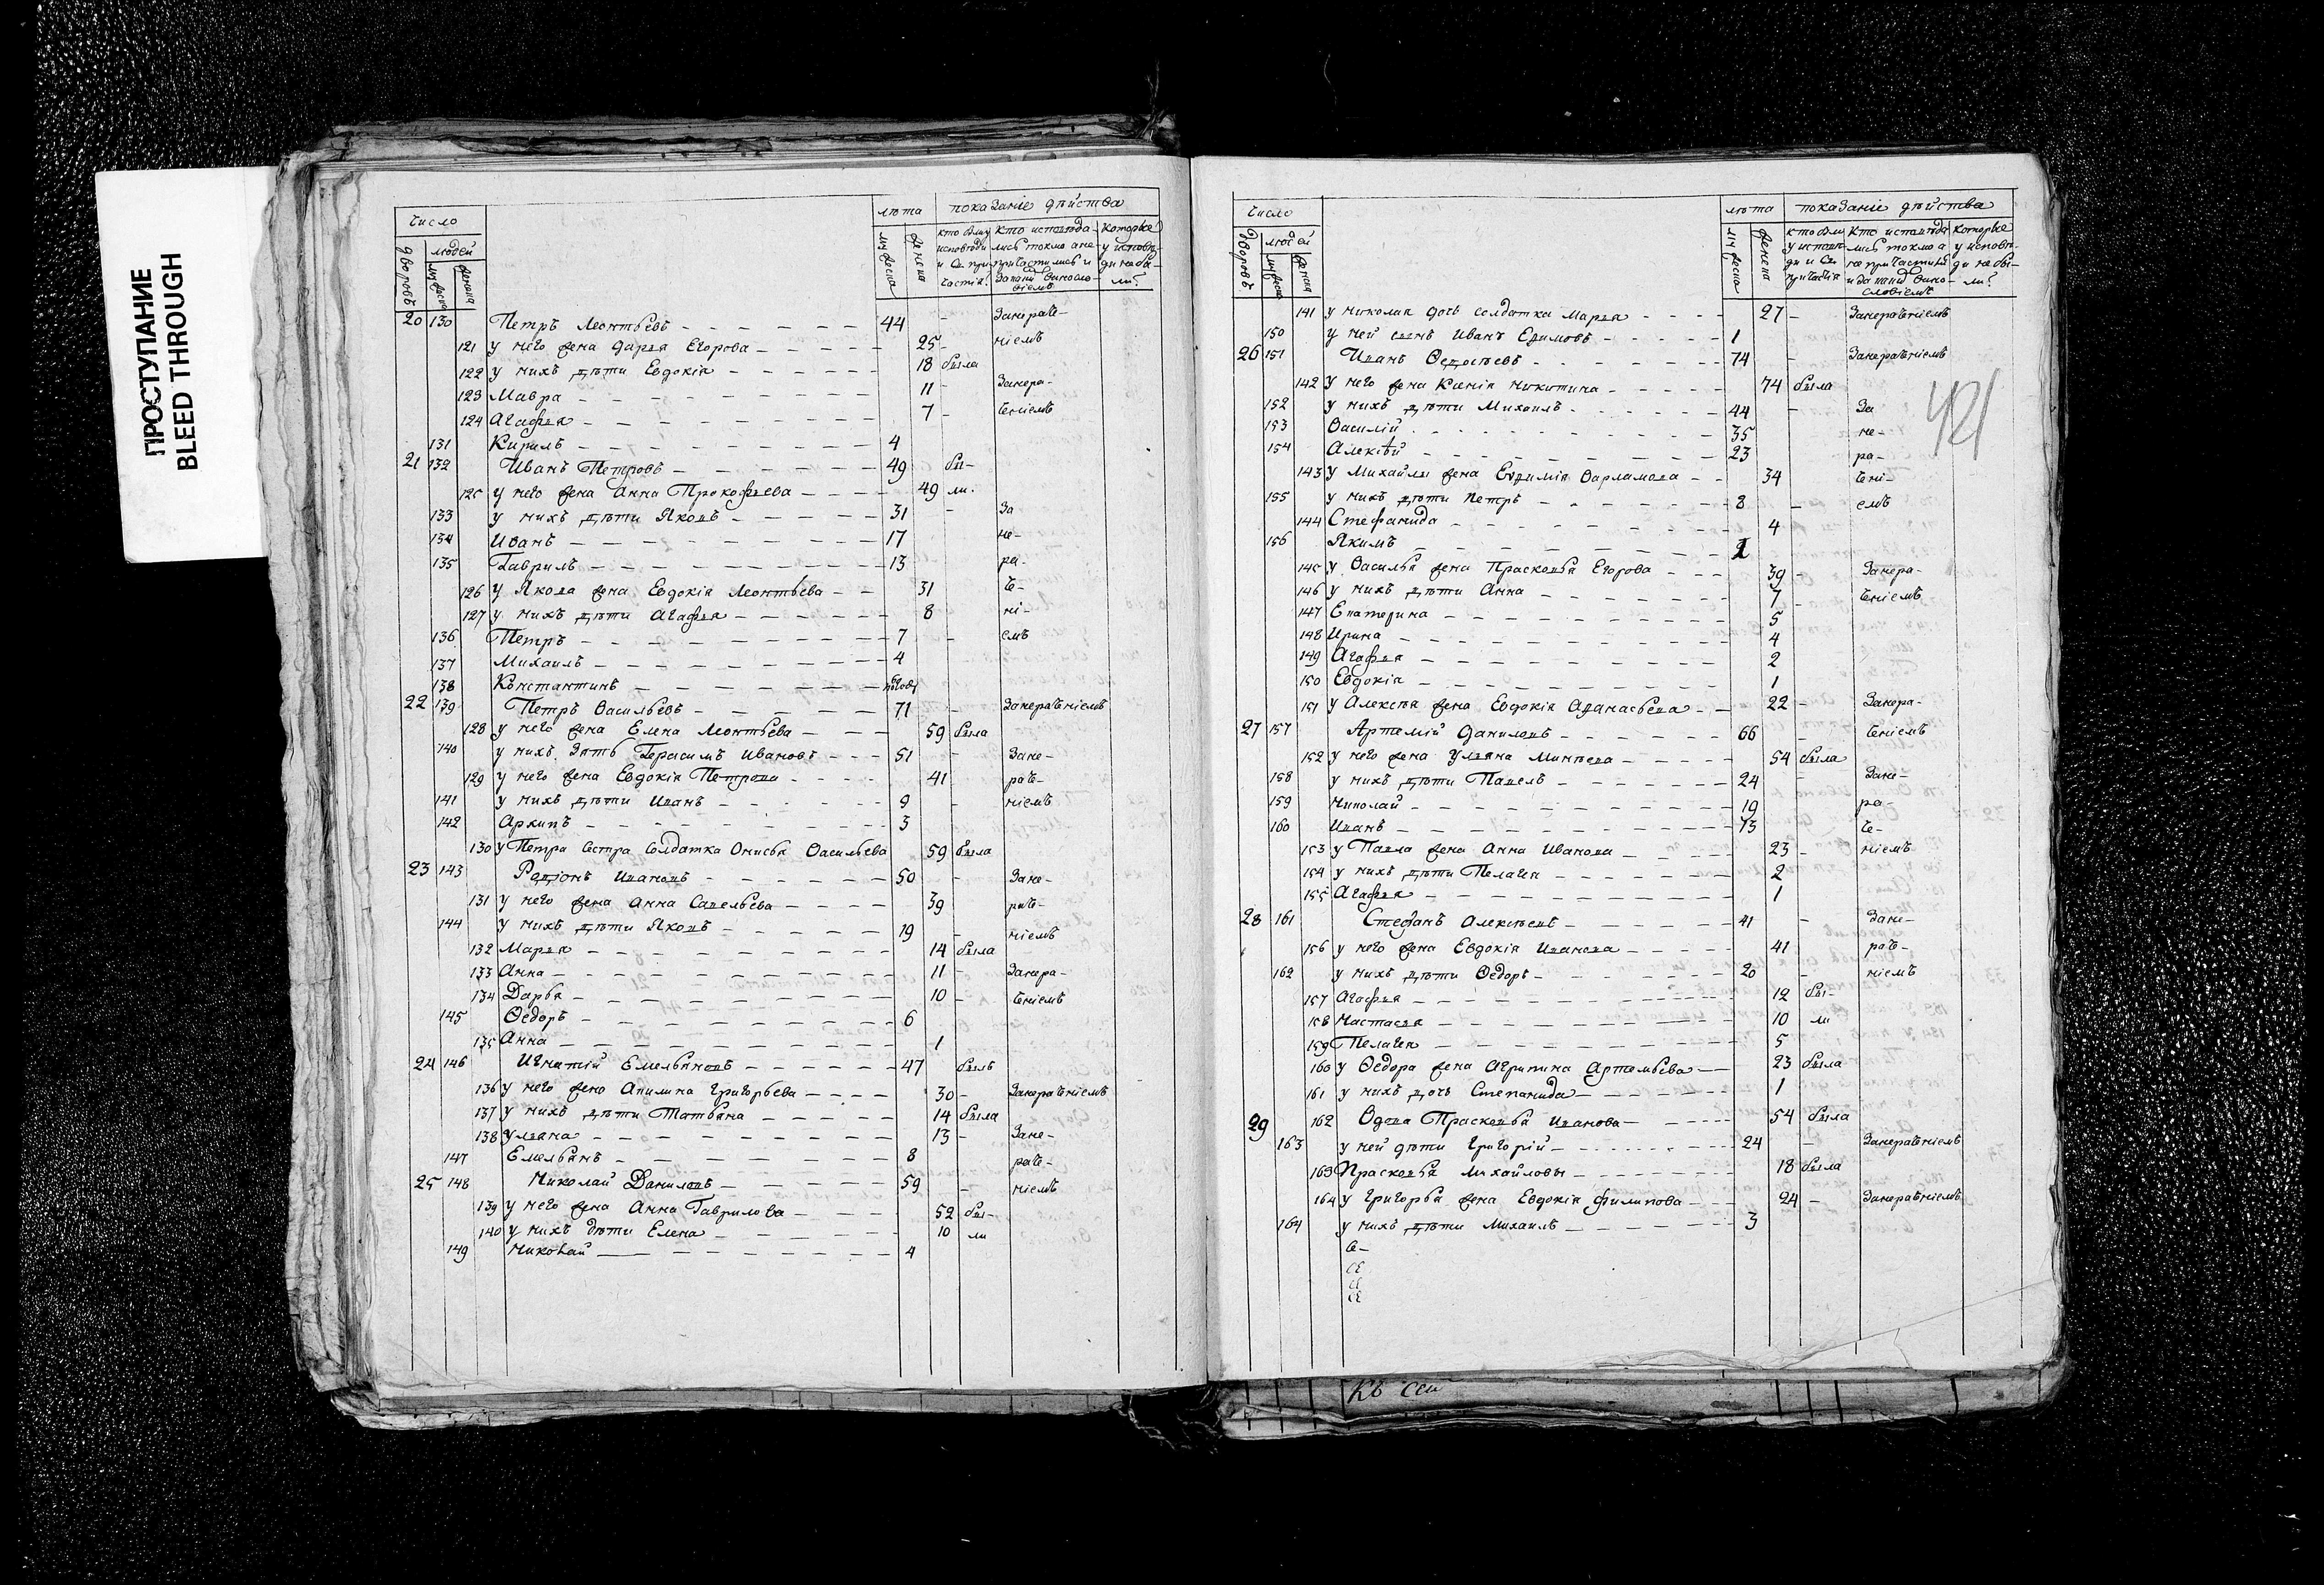 ПРОСТУПАНИЕ
BLEED THROUGH
число лѣта показаніе дѣйства
дворовъ людей мужеска женска
20 130 Петръ Леонтьевъ 44 - Занераче-
121 у него жена Дарья Егорова 25 - ніемъ
122 у нихъ дѣти Евдокія 18 была
123 Мавра 11 - Занера-
124 Агафья 7 - ченіемъ
131 Кирилъ 4
21 132 Иванъ Петровъ 49 бы-
125 у него жена Анна Прокофьева 49 ли.
133 у нихъ дѣти Яковъ 31 - За
134 Иванъ 17 - не-
135 Гаврилъ 13 - ра-
126 у Якова жена Евдокія Леонтьева 31 че-
127 у нихъ дѣти Агафья 8 ні-
136 Петръ 7 - емъ
137 Михаилъ 4
138 Константинъ полгода
22 139 Петръ Васильевъ 71 - Занераченіемъ
128 у него жена Елена Леонтьева 59 была
140 у нихъ зять Герасимъ Ивановъ 51 - Зане-
129 у него жена Евдокія Петрова 41 - раче-
141 у нихъ дѣти Иванъ 9 - ніемъ
142 Архипъ 3
130 у Петра сестра солдатка Онисья Васильева 59 была
23 143 Родіонъ Ивановъ 50 - Зане-
131 у него жена Анна Савельева 39 раче-
144 у нихъ дѣти Яковъ 19 - ніемъ
132 Марья 14 была
133 Анна 11 - Занера-
134 Дарья 10 - ченіемъ
145 Ѳедоръ 6
135 Анна 1
24 146 Игнатій Емельяновъ 47 былъ
136 у него жена Акилина Григорьева 30 - Занераченіемъ
137 у нихъ дѣти Татьяна 14 была
138 Ульяна 13 - Зане-
147 Емельянъ 8 раче-
25 148 Николай Даниловъ 59 - ніемъ
139 у него жена Анна Гаврилова 52 бы-
140 у нихъ дѣти Елена 10 ли
149 Николай 4
число лѣта показаніе дѣйства
дворовъ людей мужеска женска
141 у Николая дочь солдатка Марья 27 - Занераченіемъ
150 у ней сынъ Иванъ Ефимовъ 1
26 151 Иванъ Ѳедотьевъ 74 - Занераченіемъ
142 у него жена Ксенія Никитина 74 была
152 у нихъ дѣти Михаилъ 44 - За
153 Василій 35 не-
154 Алексѣй 23 ра-
143 у Михайлы жена Евфимія Варламова 34 чені-
155 у нихъ дѣти Петръ 8 - емъ
144 Стефанида 4
156 Якимъ 1
145 у Василья жена Прасковья Егорова 39 - Занера-
146 у нихъ дѣти Анна 7 - ченіемъ
147 Екатерина 5
148 Ирина 4
149 Агафья 2
150 Евдокія 1
151 у Алексѣя жена Евдокія Афанасьева 22 - Занера-
27 157 Артемій Даниловъ 66 - ченіемъ
152 у него жена Ульяна Минѣева 54 была
158 у нихъ дѣти Павелъ 24 - Зане-
159 Николай 19 - ра-
160 Иванъ 13 че-
153 у Павла жена Анна Иванова 23 - ніемъ
154 у нихъ дѣти Пелагея 2
155 Агафья 1
28 161 Стефанъ Алексѣевъ 41 - Зане-
156 у него жена Евдокія Иванова 41 раче-
162 у нихъ дѣти Ѳедоръ 20 - ніемъ
157 Агафья 12 бы-
158 Настасья 10 ли
159 Пелагея 5
160 у Ѳедора жена Агрипина Артемьева 23 была
161 у нихъ дочь Степанида 1
29 162 Вдова Прасковья Иванова 54 была
163 у ней дѣти Григорій 24 - Занераченіемъ
163 Прасковья Михайловы 18 была
164 у Григорья жена Евдокія Филипова 24 - Занераченіемъ
164 у нихъ дѣти Михаилъ 3
421
Къ сей